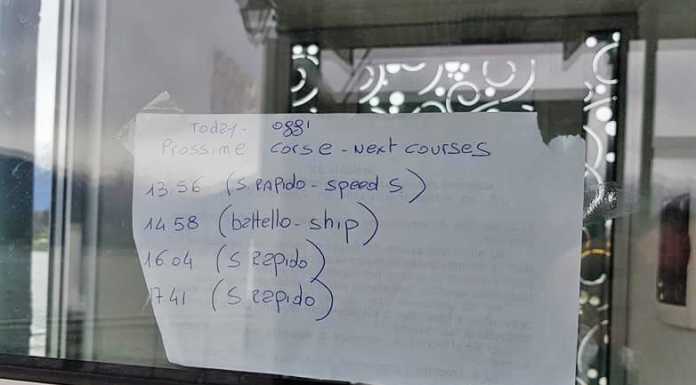 Today - oggi
Prossime corse - Next courses
13 56 (S RAPIDO - speed S)
14 58 (battello - ship)
16 04 (S Rapido)
1741 (S Rapido)